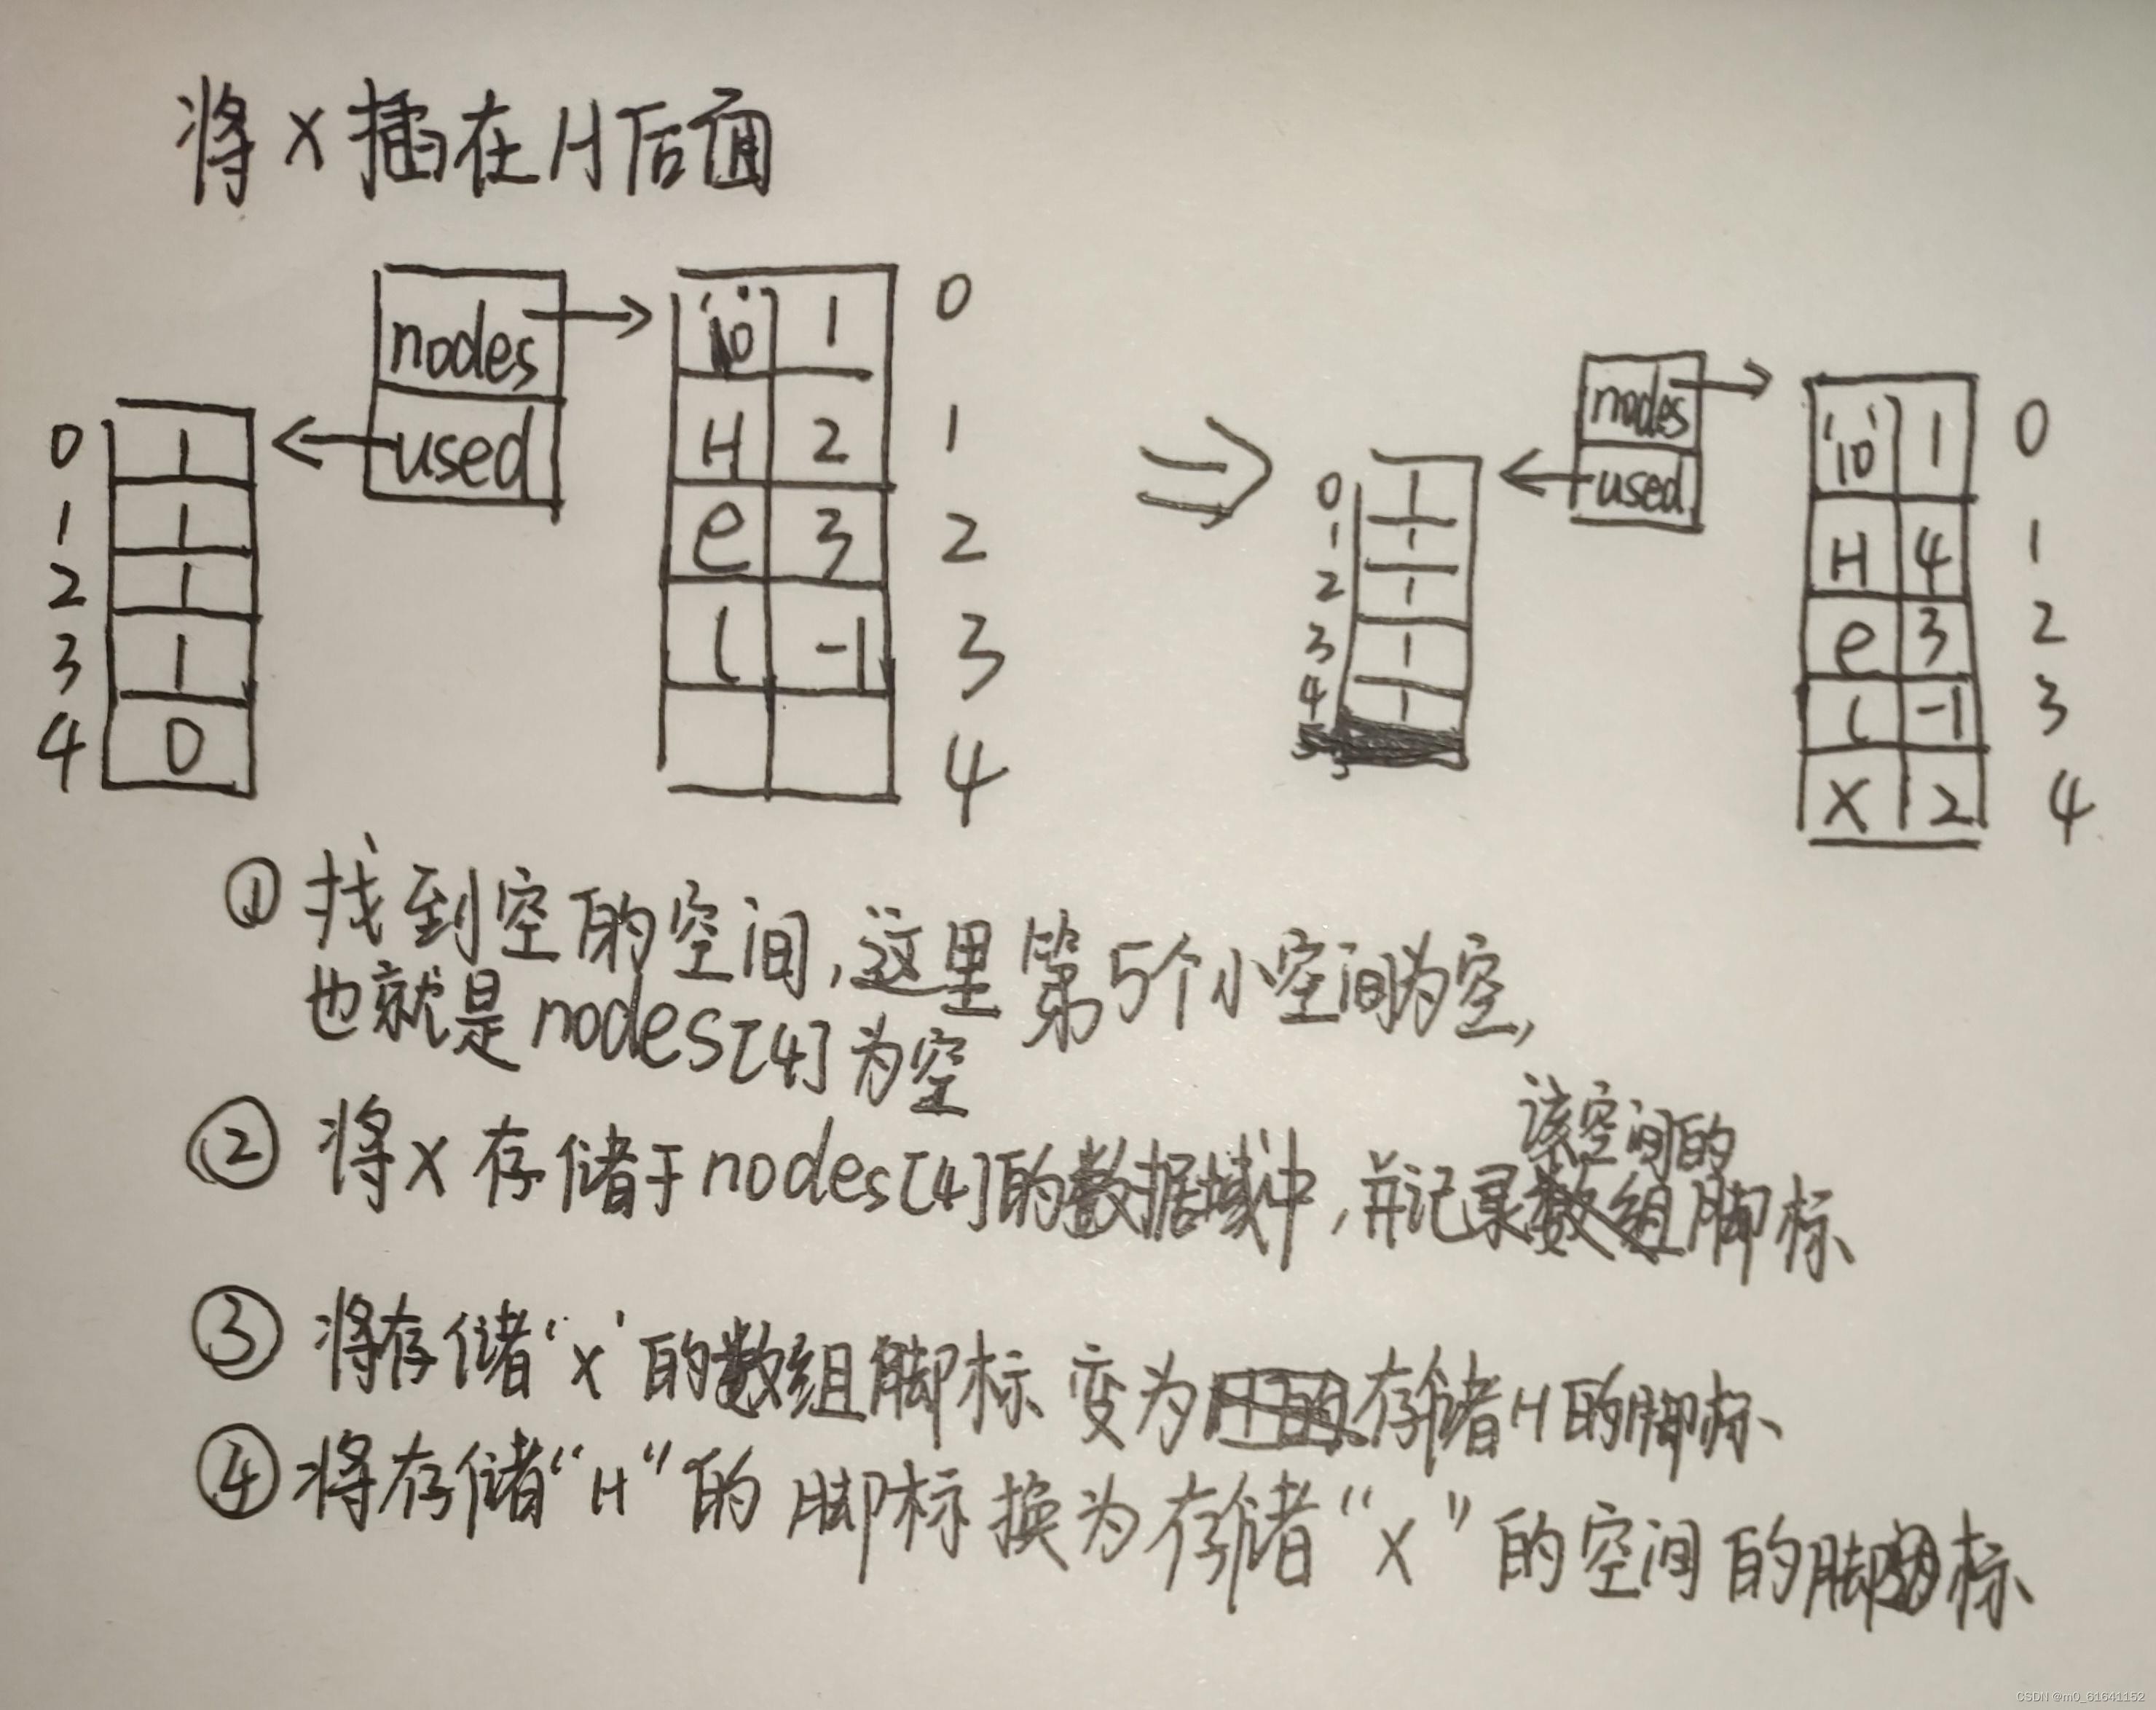 将X插在H后面
nodes
used
0 1
1 1
2 1
3 1
4 0
'\0' 1 0
H 2 1
e 3 2
l -1 3
4
⇒
nodes
used
0 1
1 1
2 1
3 1
4 1
'\0' 1 0
H 4 1
e 3 2
l -1 3
X 2 4
① 找到空的空间,这里第5个小空间为空,
也就是nodes[4]为空
该空间的
② 将X存储于nodes[4]的数据域中,并记录数组脚标、
③ 将存储'X'的数组脚标变为存储H的脚标、
④ 将存储“H”的脚标换为存储“X”的空间的脚标、
CSDN @m0_61641152